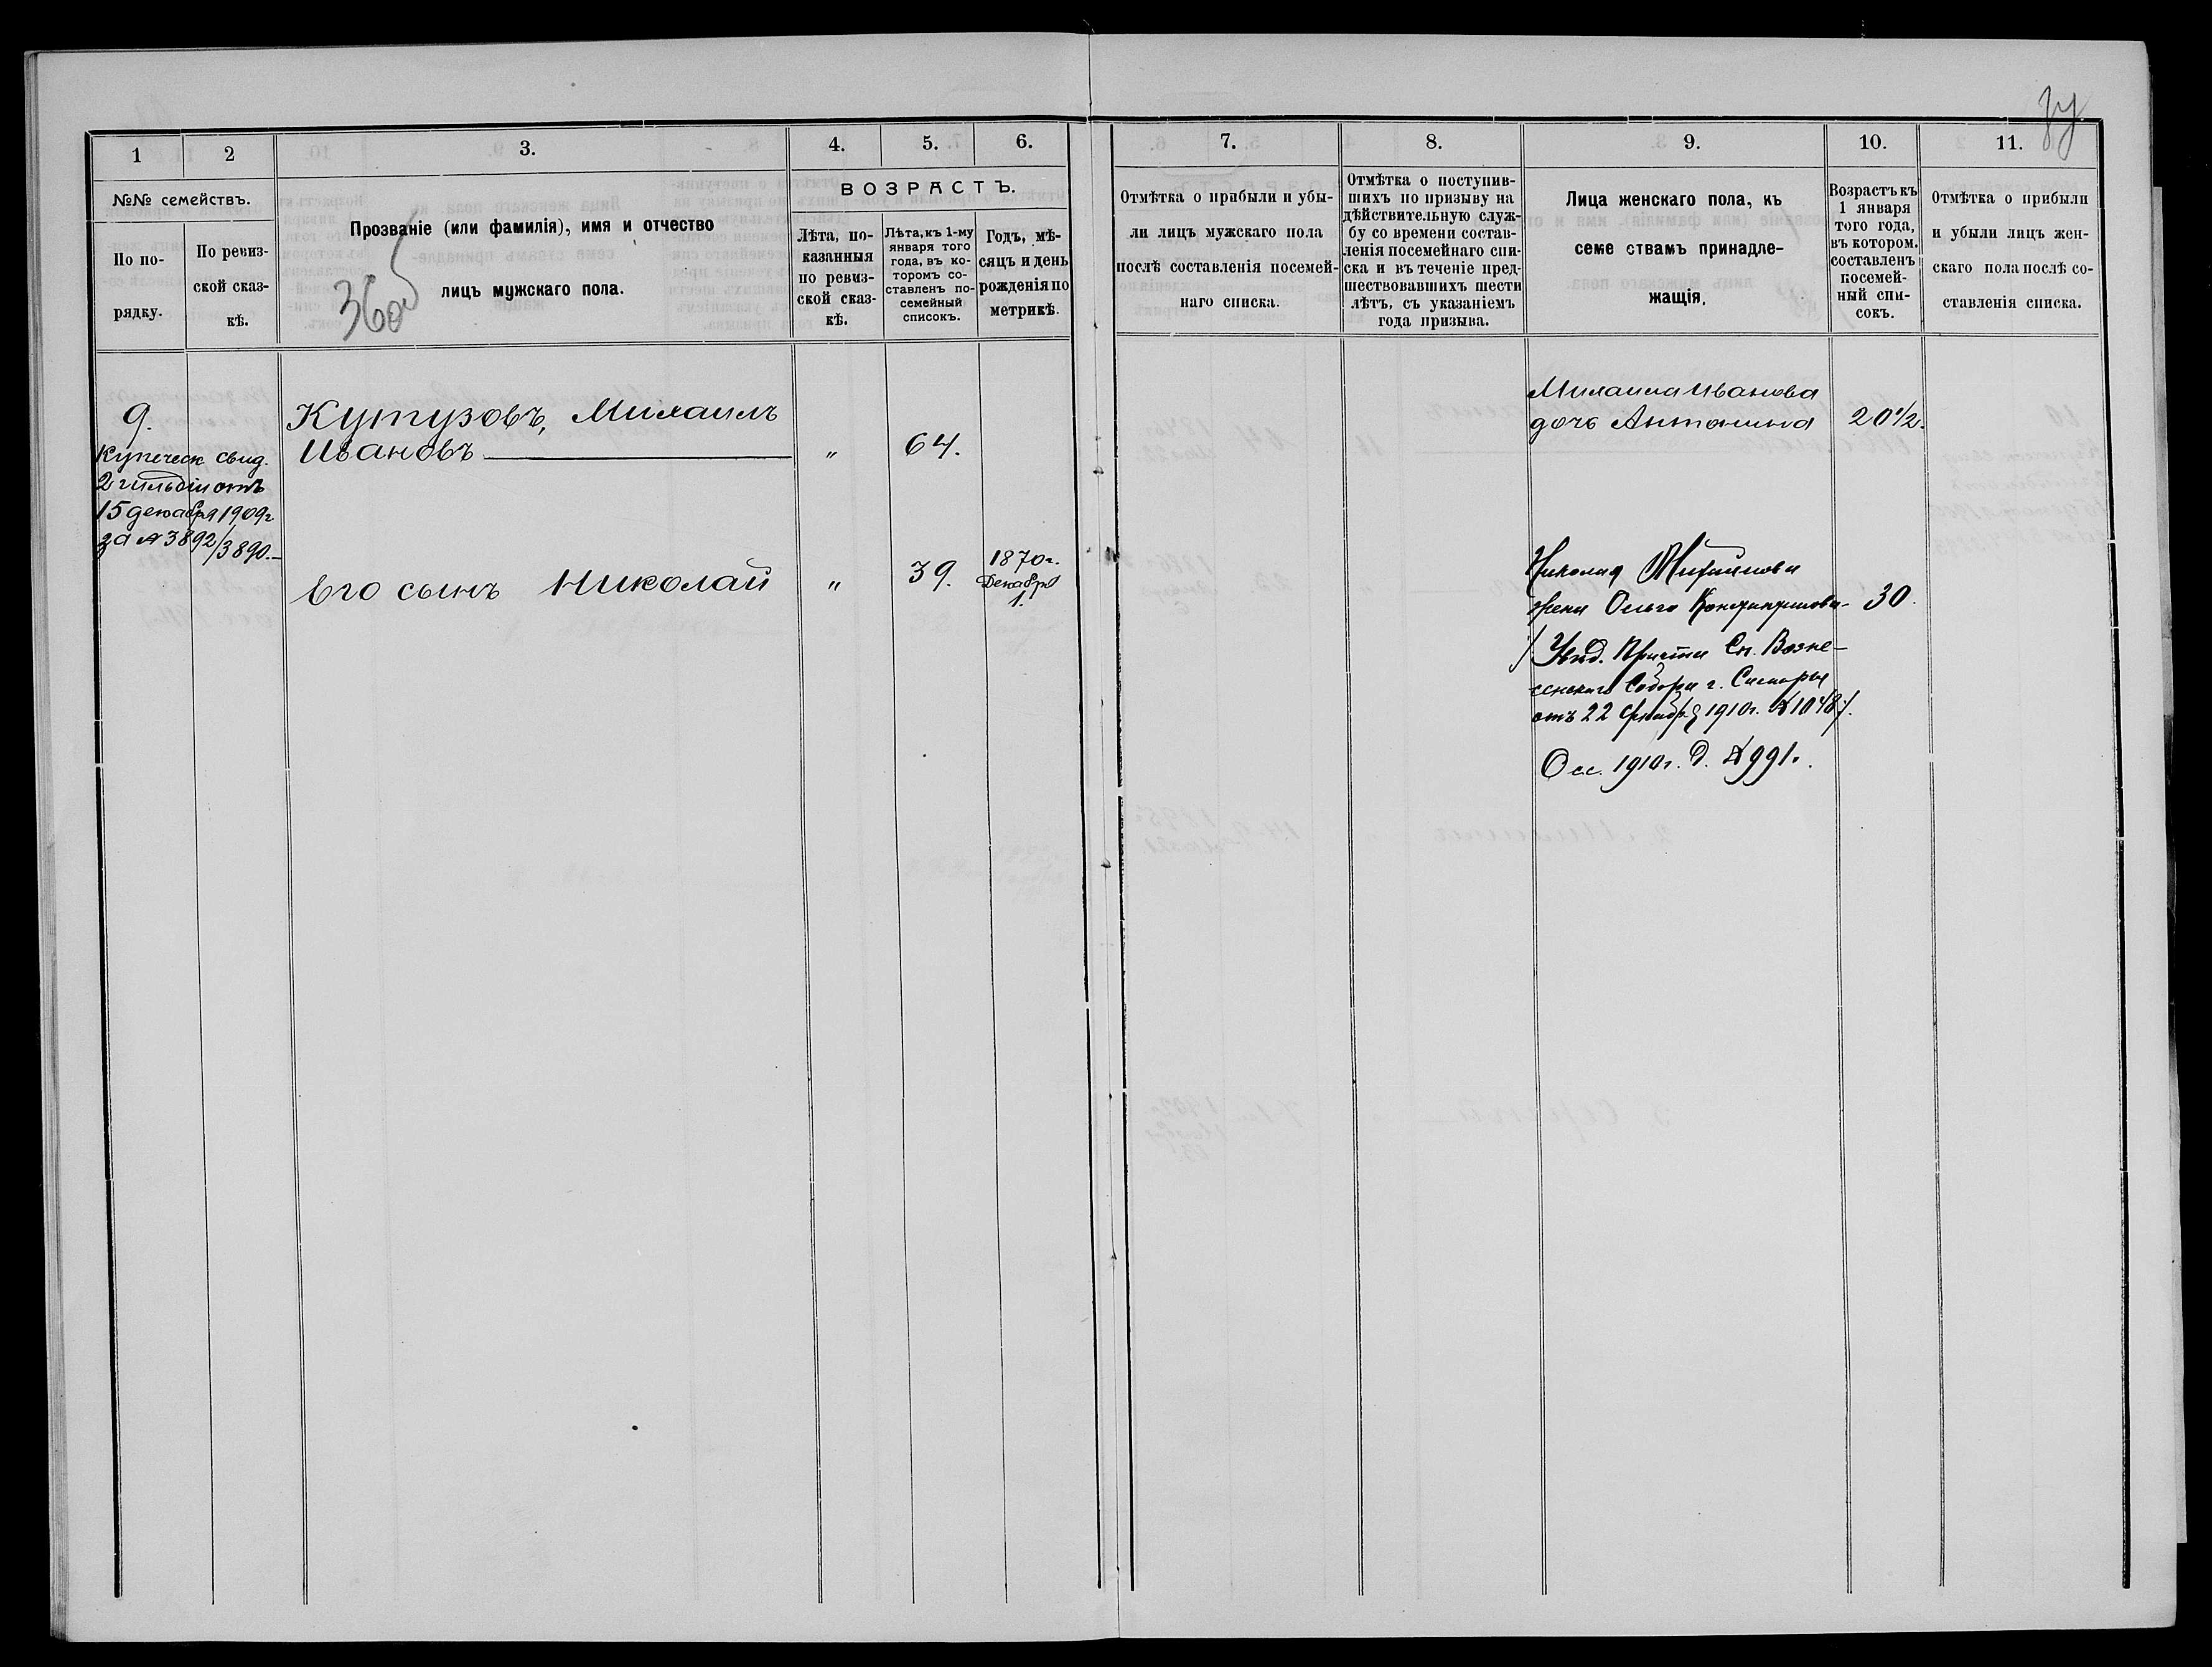 1
2
3.
4.
5.
6.
7.
8.
9.
10.
11.
№№ семействъ.
По по-
рядку.
По ревиз-
ской сказ-
кѣ.
Прозваніе (или фамилія), имя и отчество
лицъ мужскаго пола.
ВОЗРАСТЪ.
Лѣта, по-
казанныя
по ревиз-
ской сказ-
кѣ.
Лѣта, къ 1-му
января того
года, въ ко-
торомъ со-
ставленъ по-
семейный
списокъ.
Годъ, мѣ-
сяцъ и день
рожденія по
метрикѣ.
Отмѣтка о прибыли и убы-
ли лицъ мужскаго пола
послѣ составленія посемей-
наго списка.
Отмѣтка о поступив-
шихъ по призыву на
дѣйствительную служ-
бу со времени состав-
ленія посемейнаго спи-
ска и въ теченіе пред-
шествовавшихъ шести
лѣтъ, съ указаніемъ
года призыва.
Лица женскаго пола, къ
семе ствамъ принадле-
жащія.
Возрастъ къ
1 января
того года,
въ котором.
составленъ
посемей-
ный спи-
сокъ.
Отмѣтка о прибыли
и убыли лицъ жен-
скаго пола послѣ со-
ставленія списка.
9.
Купеческ. свид.
2 гильдіи отъ
15 декабря 1909г.
за № 3892/3890.–
Кутузовъ, Михаилъ
Ивановъ
"
64.
Его сынъ Николай
"
39.
1870г.
Декабря
1.
Михаила Иванова
дочь Антонина
20 1/2.
Николая Михаилова
жена Ольга Константинова-
30.
Собора г. Самары
отъ 22 1910г. № 1048/.
1910г. д. № 991.